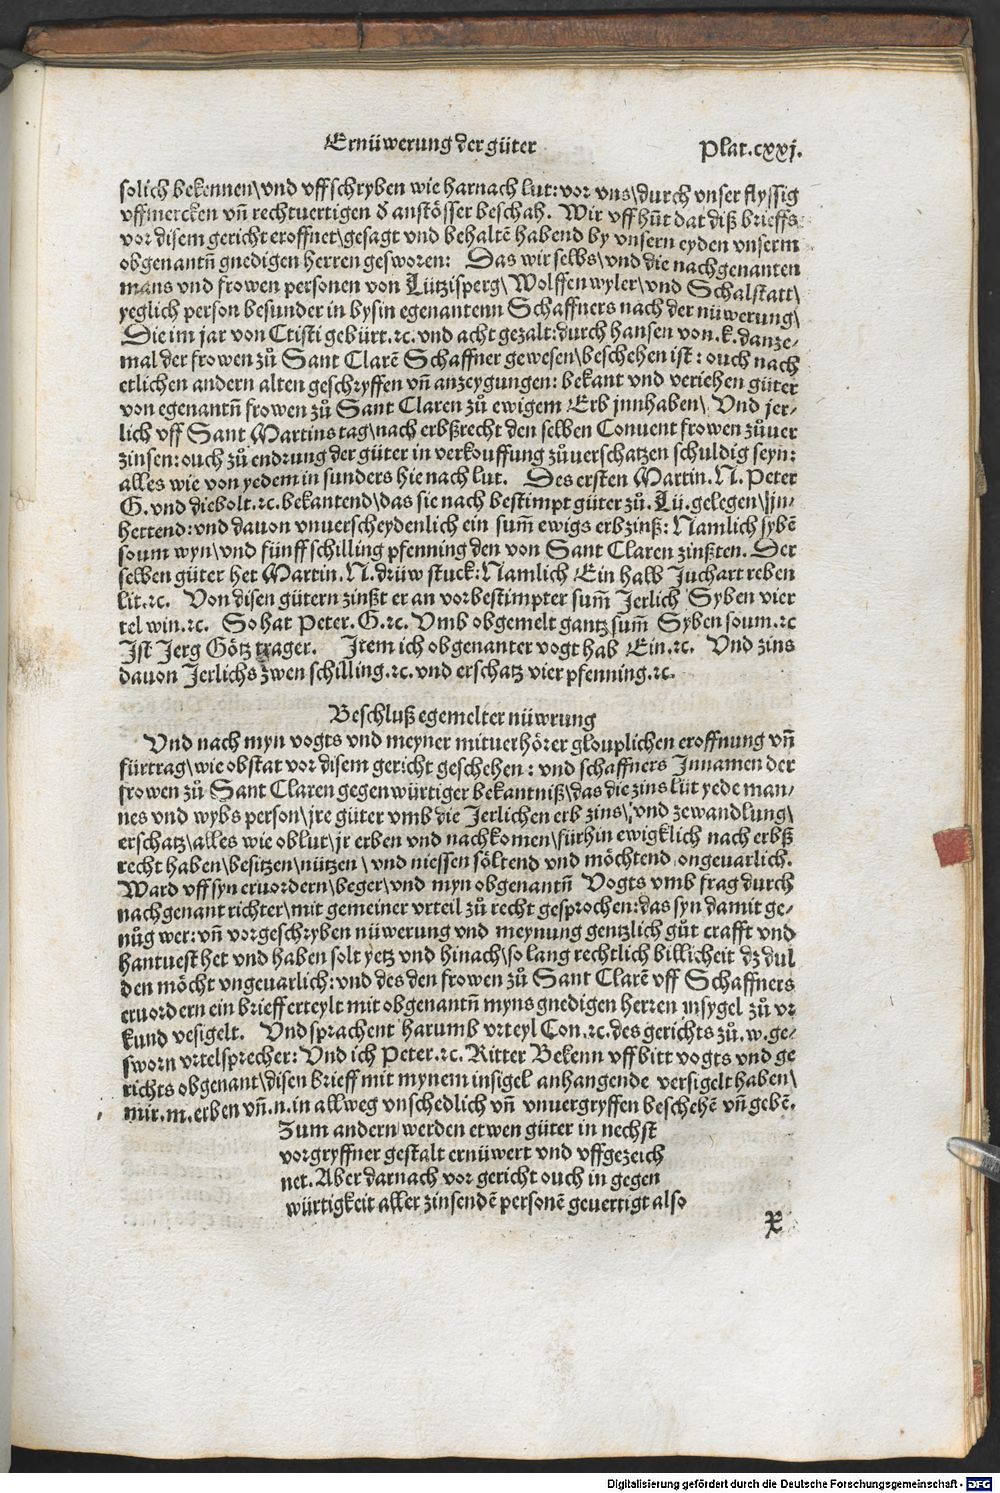 Ernüwerung der güter Plat.cxxj.
solich bekennen\vnd vffschryben wie harnach lut: vor vns\durch vnser flyssig
vffmercken vñ rechtuertigen d anstösser beschah. Wir vff hüt dat diß brieffs
vor disem gericht eroffnet\gesagt vnd behaltē habend by vnsern eyden vnserm
obgenantñ gnedigen herren gesworen: Das wir selbs\vnd die nachgenanten
mans vnd frowen personen von Lützisperg\Wolffenwyler\vnd Schalstatt\
yeglich person besunder in bysin egenantenn Schaffners nach der nüwerung\
Die im jar von Cristi gebürt.ꝛc.vnd acht gezalt: durch hansen von.k.danze⸗
mal der frowen zů Sant Clarē Schaffner gewesen\beschehen ist: ouch nach
etlichen andern alten geschryffen vñ anzeygungen: bekant vnd veriehen güter
von egenantñ frowen zů Sant Claren zů ewigem Erb jnnhaben\ Vnd jer⸗
lich vff Sant Martins tag\nach erbßrecht den selben Conuent frowen zůuer
zinsen: ouch zů endrung der güter in verkouffung zůuerschatzen schuldig seyn:
alles wie von yedem in sunders hie nach lut. Des ersten Martin.N. Peter
G. vnd diebolt.ꝛc.bekantend\das sie nach bestimpt güter zů.Lü.gelegen\jn⸗
hettend: vnd dauon vnuerscheydenlich ein sum̄ ewigs erbzinß: Namlich sybē
soum wyn\vnd fünff schilling pfenning den von Sant Claren zinßten. Der
selben güter het Martin.N.drüw stuck: Namlich Ein halb Juchart reben
lit.ꝛc. Von disen gütern zinßt er an vorbestimpter sum̄ Jerlich Syben vier
tel win.ꝛc. So hat Peter.G.ꝛc. Vmb obgemelt gantz sum̄ Syben soum.ꝛc
Jst Jerg Götz trager. Jtem ich obgenanter vogt hab Ein.ꝛc. Vnd zins
dauon Jerlichs zwen schilling.ꝛc.vnd erschatz vier pfenning.ꝛc.
Beschluß egemelter nüwrung
Vnd nach myn vogts vnd meyner mituerhörer glouplichen eroffnung vñ
fürtrag\wie obstat vor disem gericht geschehen: vnd schaffners Jnnamen der
frowen zů Sant Claren gegenwürtiger bekantniß\das die zinslüt yede man⸗
nes vnd wybs person\jre güter vmb die Jerlichen erb zins\vnd zewandlung\
erschatz\alles wie oblut\jr erben vnd nachkomen\fürhin ewigklich nach erbß
recht haben\besitzen\nützen\vnd niessen söltend vnd möchtend ongeuarlich.
Ward vff syn eruordern\beger\vnd myn obgenantñ Vogts vmb frag durch
nachgenant richter\mit gemeiner vrteil zů recht gesprochen: das syn damit ge⸗
nůg wer: vñ vorgeschryben nüwerung vnd meynung gentzlich gůt crafft vnd
hantuest het vnd haben solt yetz vnd hinach\so lang rechtlich billicheit dz dul
den möcht vngeuarlich: vnd des den frowen zů Sant Clarē vff Schaffners
eruordern ein brieff erteylt mit obgenantñ myns gnedigen herren insygel zů vr
kund vesigelt. Vnd sprachent harumb vrteyl Con.ꝛc.des gerichts zů.w.ge⸗
sworn vrtelsprecher: Vnd ich Peter.ꝛc.Ritter Bekenn vff bitt vogts vnd ge
richts obgenant\disen brieff mit mynem insigel anhangende versigelt haben\
mir.m.erben vñ.n.in allweg vnschedlich vñ vnuergryffen beschehē vñ gebē.
Zum andern werden etwen güter in nechst
vorgryffner gestalt ernüwert vnd vffgezeich
net. Aber darnach vor gericht ouch in gegen
würtigkeit aller zinsendē personē geuertigt also
X
Digitalisierung gefördert durch die Deutsche Forschungsgemeinschaft - DFG